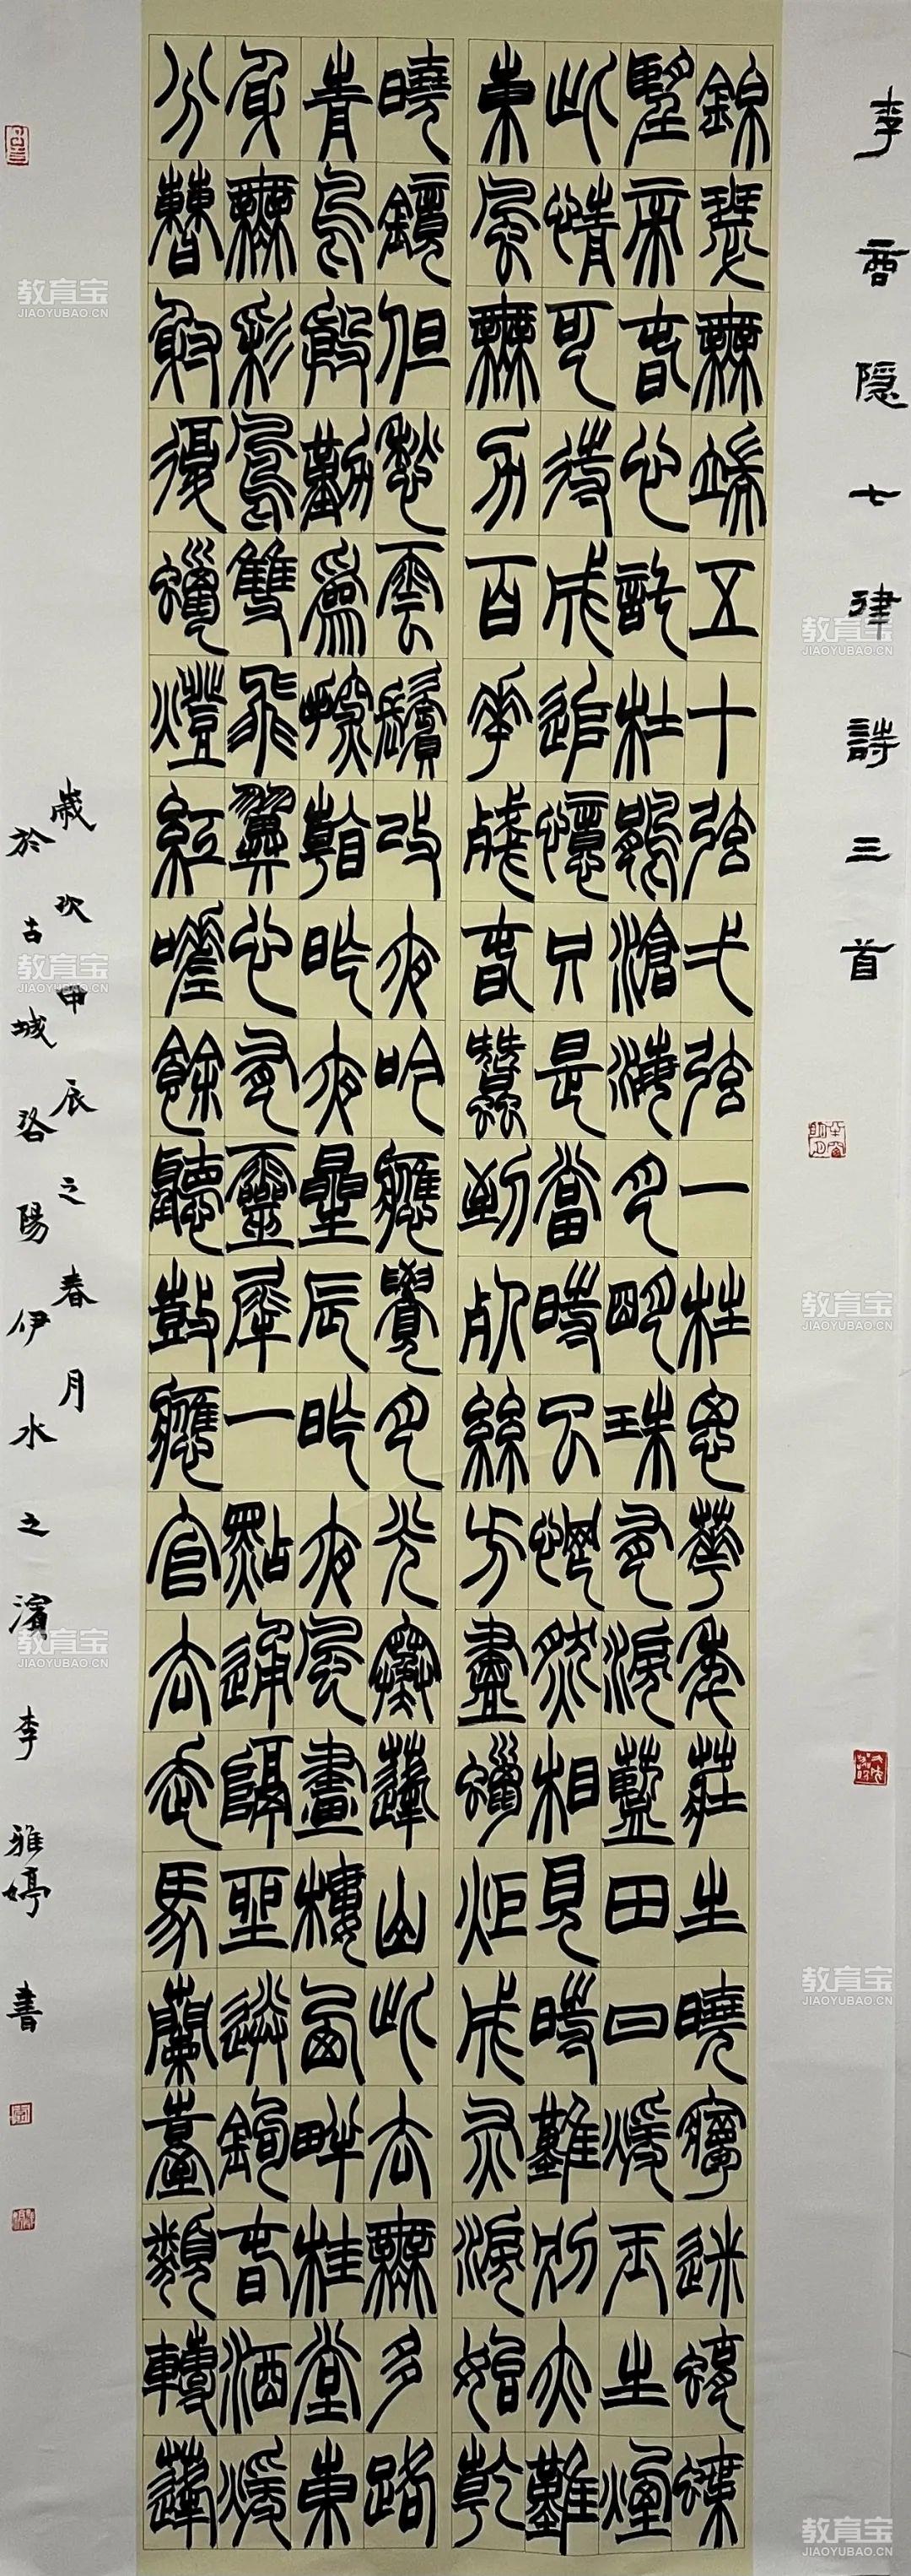 李商隐七律詩三首
錦瑟無端五十弦弌弦一柱思華年莊生曉夢迷蝴蝶
望帝春心託杜鵑滄海月明珠有淚藍田日暖玉生煙
此情可待成追憶只是當時已惘然相見時難別亦難
東風無力百花殘春蠶到死絲方盡蠟炬成灰淚始乾
曉鏡但愁雲鬢改夜吟應覺月光寒蓬山此去無多路
青鳥殷勤爲探看昨夜星辰昨夜風畫樓西畔桂堂東
身無彩鳳雙飛翼心有靈犀一點通隔座送鉤春酒暖
分曹射覆蠟燈紅嗟餘聽鼓應官去走馬蘭臺類轉蓬
歲次甲辰之春月
於古城洛陽伊水之濱李雅婷書
教育宝
JIAOYUBAO.CN
教育宝
JIAOYUBAO.CN
教育宝
JIAOYUBAO.CN
教育宝
JIAOYUBAO.CN
教育宝
JIAOYUBAO.CN
教育宝
JIAOYUBAO.CN
教育宝
JIAOYUBAO.CN